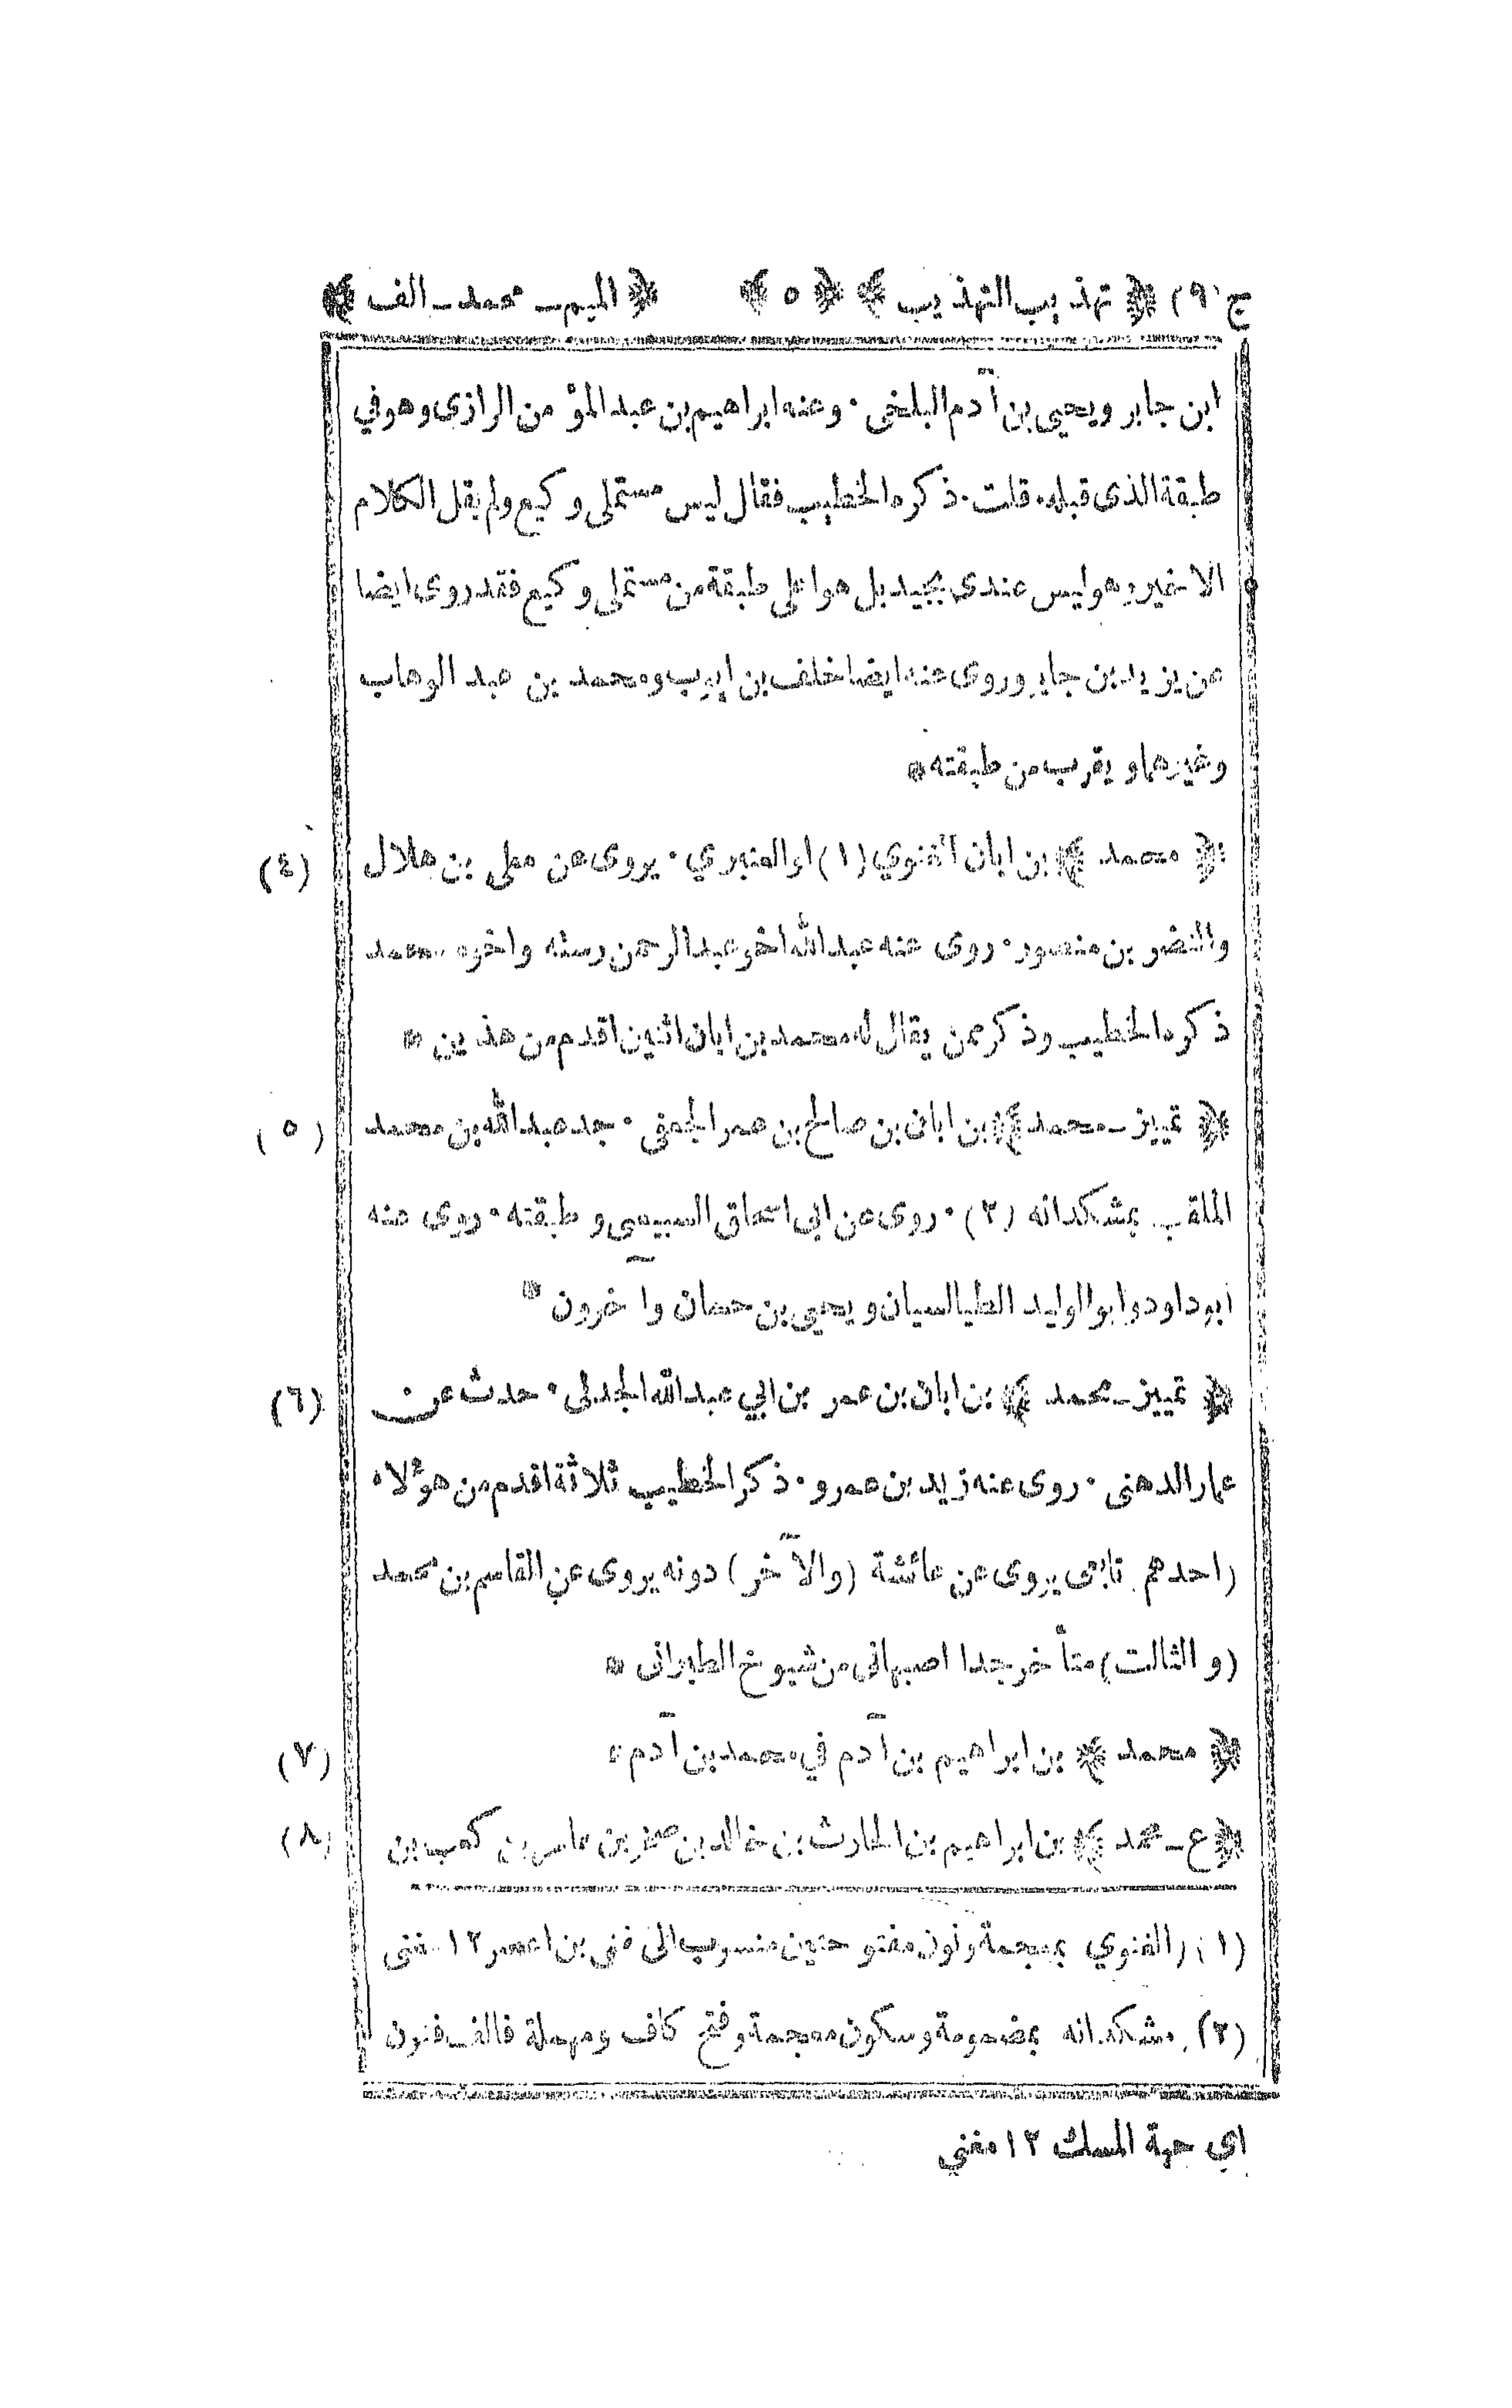 ج (٩) ﴿ تهذيب التهذيب ﴾ ﴿ ٥ ﴾ ﴿ الميم ـ محمد ـ الف ﴾
ابن جابر ويحيى بن آدم البلخى ۰ وعنه ابراهيم بن عبد المؤمن الرازى وهو في
طبقة الذى قبله ۰ قلت ۰ ذكره الخطيب فقال ليس مستملى وكيع ولم يقل الكلام
الاخير وهو ليس عندى بجيد بل هو اعلى طبقة من مستملى وكيع فقد روى ايضا
عن يزيد بن جابر وروى عنه ايضا خلف بن ايوب ومحمد بن عبد الوهاب
وغيرهما ويقرب من طبقته *
(٤) ﴿ محمد ﴾ بن ابان الغنوي (١) او العنبري ۰ يروى عن معلى بن هلال
والنضر بن منصور ۰ روى عنه عبد الله اخو عبد الرحمن رسته واخوه محمد
ذكره الخطيب وذكر ممن يقال له محمد بن ابان اثنين اقدم من هذين *
(٥) ﴿ تمييز ـ محمد ﴾ بن ابان بن صالح بن عمر الجعفى ۰ جد عبد الله بن محمد
الملقب بمشكدانه (٢) ۰ روى عن ابى اسحاق السبيعى وطبقته ۰ روى عنه
ابو داود وابو الوليد الطيالسيان ويحيى بن حسان وآخرون *
(٦) ﴿ تمييز ـ محمد ﴾ بن ابان بن عمر بن ابي عبد الله الجدلى ۰ حدث عن
عمار الدهنى ۰ روى عنه زيد بن عمرو ۰ ذكر الخطيب ثلاثة اقدم من هؤلاء
(احدهم تابعى يروى عن عائشة (والآخر) دونه يروى عن القاسم بن محمد
(والثالث) متأخر جدا اصبهانى من شيوخ الطبرانى *
(٧) ﴿ محمد ﴾ بن ابراهيم بن آدم في محمد بن آدم *
(٨) ﴿ ع ـ محمد ﴾ بن ابراهيم بن الحارث بن خالد بن صخر بن عامر بن كعب بن
(١) (الغنوي بمعجمة ونون مفتوحتين منسوب الى غنى بن اعصر ١٢ مغنى
(٢) مشكدانه بمضمومة وسكون معجمة وفتح كاف ومهملة فالف فنون
اى حبة المسك ١٢ مغني